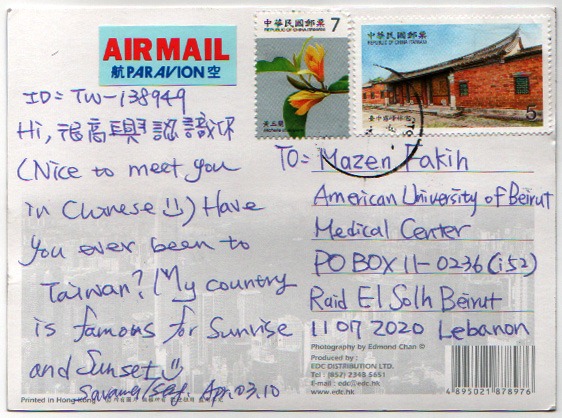 AIR MAIL
航 PAR AVION 空
中華民國郵票
7
REPUBLIC OF CHINA (TAIWAN)
中華民國郵票
REPUBLIC OF CHINA (TAIWAN)
5
ID=TW-138949
Hi, 很高興認識你
(Nice to meet you
in Chinese) Have
you ever been to
Taiwan? My country
is famous for Sunrise
and Sunset
Apr. 03. 10
TO: Mazen Fakih
American University of Beirut
Medical Center
PO BOX 11-0236 (i52)
Raid El Solh Beirut
1107 2020 Lebanon
Photography by Edmond Chan ©
Produced by :
EDC DISTRIBUTION LTD.
Tel : (852) 2348 5651
E-mail : edc@edc.hk
www.edc.hk
4 895021 878976
Printed in Hong Kong